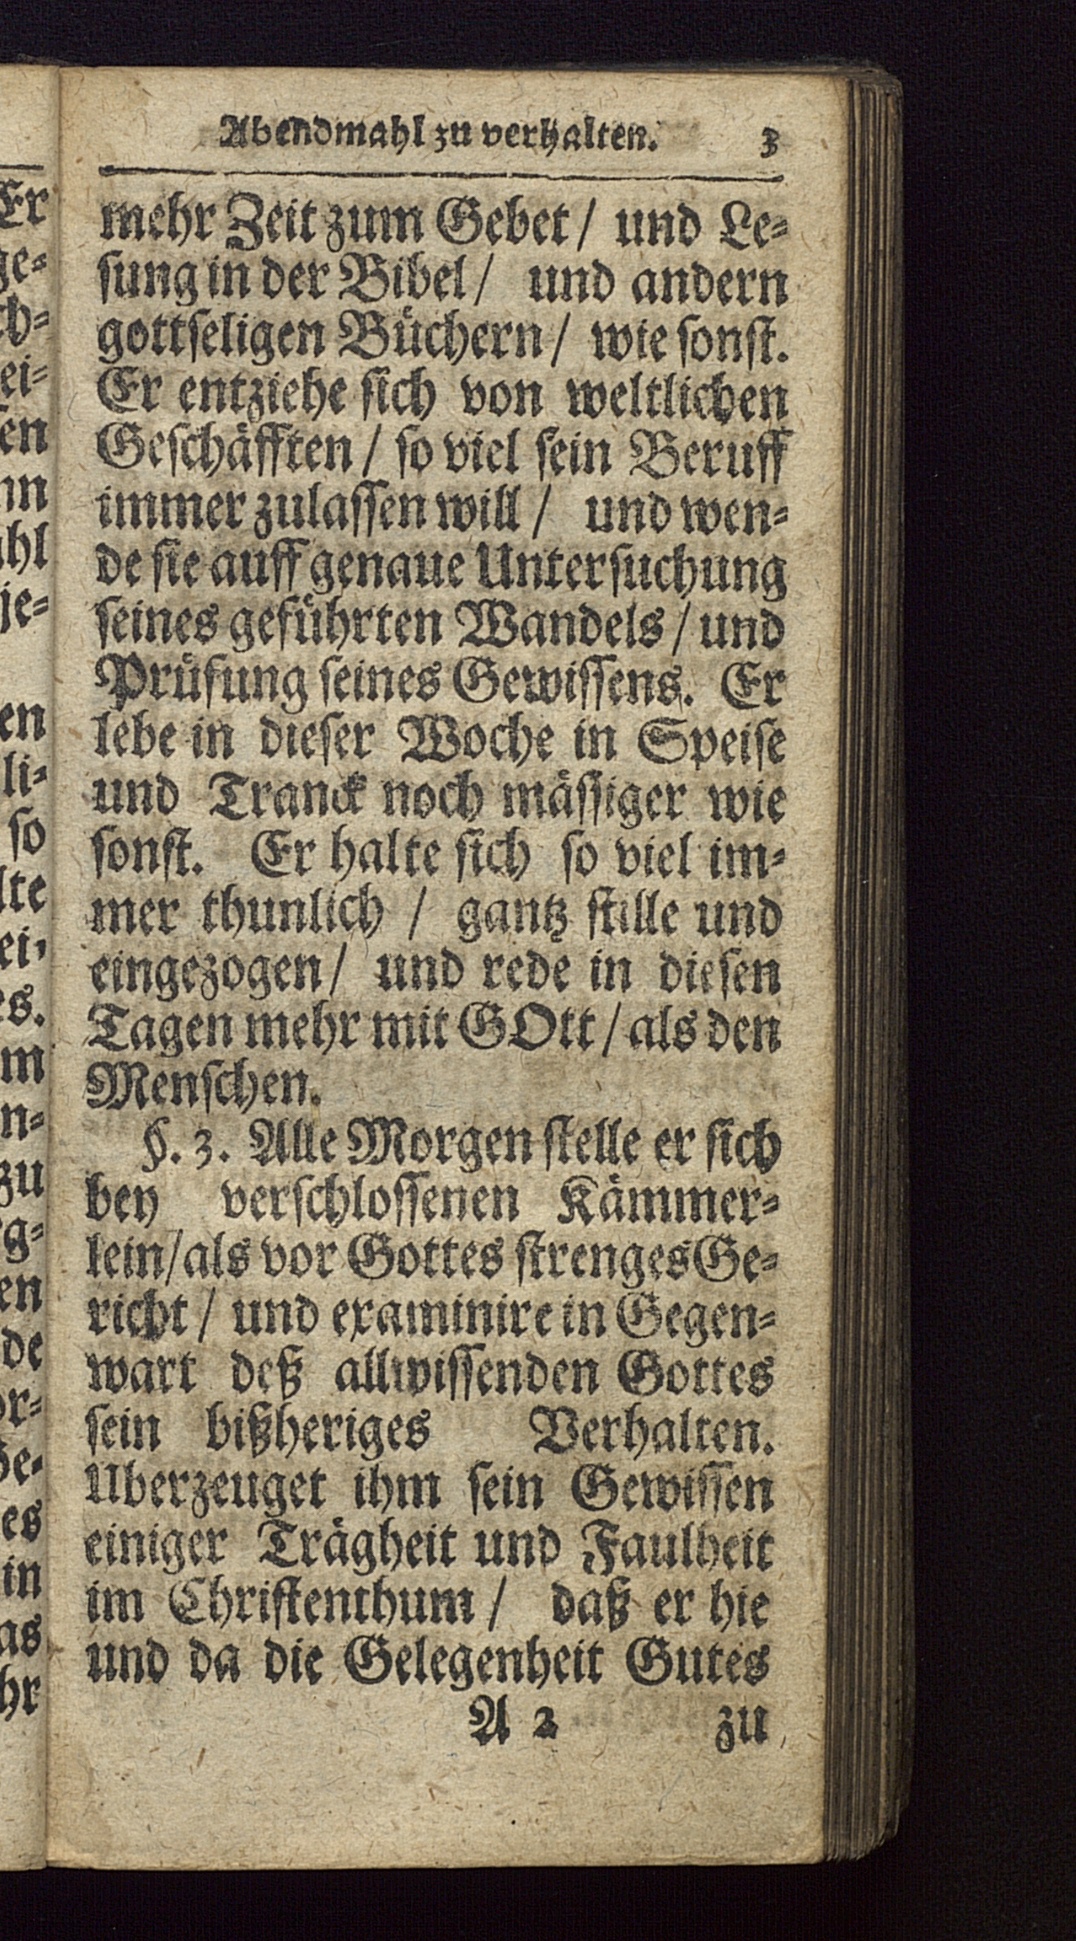 Abendmahl zu verhalten. 3
mehr Zeit zum Gebet / und Le-
sung in der Bibel / und andern
gottseligen Büchern / wie sonst.
Er entziehe sich von weltlichen
Geschäfften / so viel sein Beruff
immer zulassen will / und wen-
de sie auff genaue Untersuchung
seines geführten Wandels / und
Prüfung seines Gewissens. Er
lebe in dieser Woche in Speise
und Tranck noch mässiger wie
sonst. Er halte sich so viel im-
mer thunlich / gantz stille und
eingezogen / und rede in diesen
Tagen mehr mit GOtt / als den
Menschen.
§. 3. Alle Morgen stelle er sich
bey verschlossenen Kämmer-
lein / als vor Gottes strenges Ge-
richt / und examinire in Gegen-
wart deß allwissenden Gottes
sein bißheriges Verhalten.
Uberzeuget ihm sein Gewissen
einiger Trägheit und Faulheit
im Christenthum / daß er hie
und da die Gelegenheit Gutes
A 2 zu